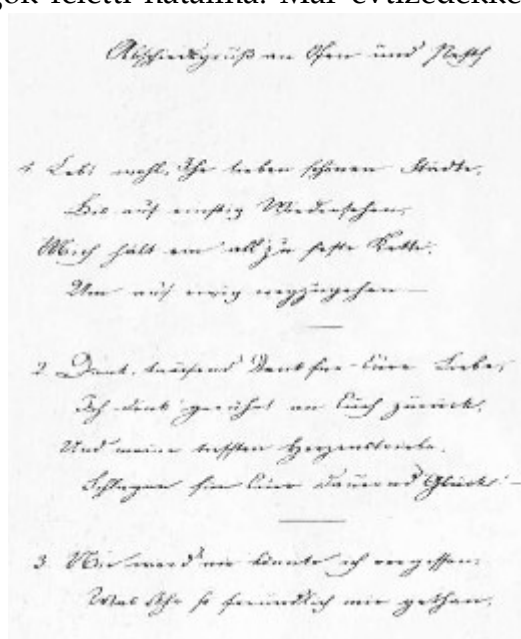 gok feletti hatalma. Már évtizedekke
Abschiedsgruß an Ofen und Pesth
1. Lebt wohl, Ihr lieben schönen Städte,
Bis auf einstig Wiedersehen,
Mich hält ein allzu feste Kette,
Um auf ewig wegzugehen —
2. Dank, tausend Dank für Eure Liebe,
Ich denk gerührt an Euch zurück,
Und meine tiefsten Herzenstriebe,
Schlagen für Euer dauernd Glück! —
3. Nie werd nie könnte ich vergessen,
Was Ihr so freundlich mir gethan,